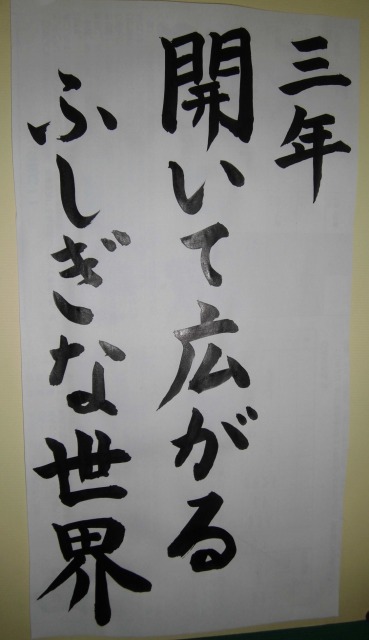 三年
開いて広がる
ふしぎな世界